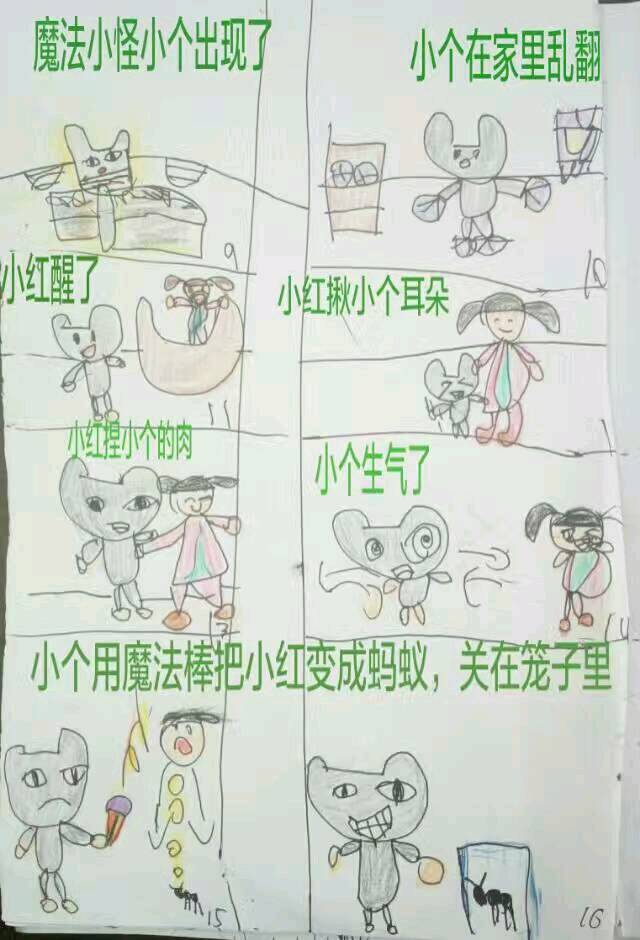 魔法小怪小个出现了
小个在家里乱翻
9
10
小红醒了
小红揪小个耳朵
11
小红捏小个的肉
小个生气了
14
小个用魔法棒把小红变成蚂蚁，关在笼子里
15
16